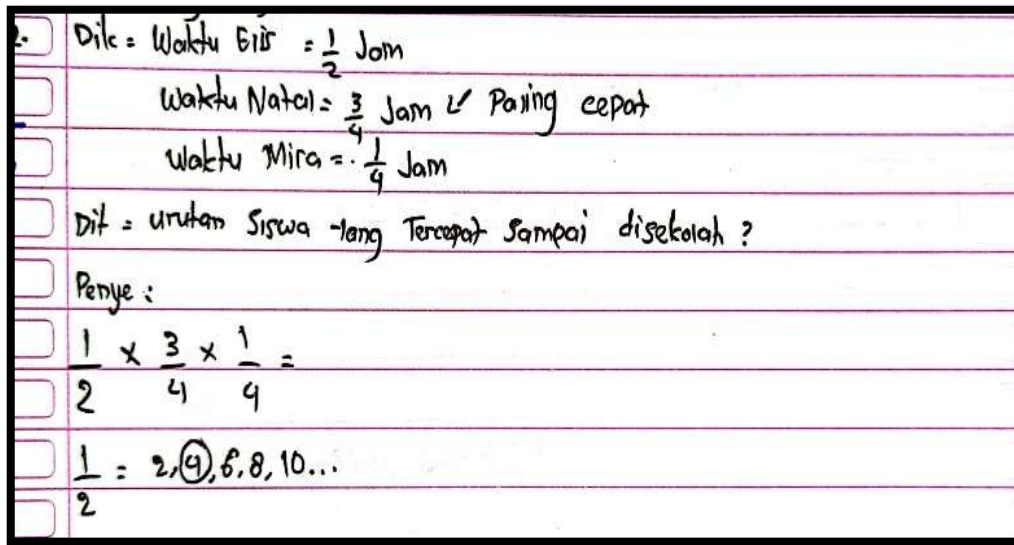 2. Dik = Waktu Eris = 1/2 Jam
Waktu Natal = 3/4 Jam ✓ Paling cepat
Waktu Mira = 1/4 Jam
Dit = urutan Siswa yang Tercepat Sampai disekolah ?
Penye :
1/2 × 3/4 × 1/4 =
1/2 = 2, 4, 6, 8, 10...